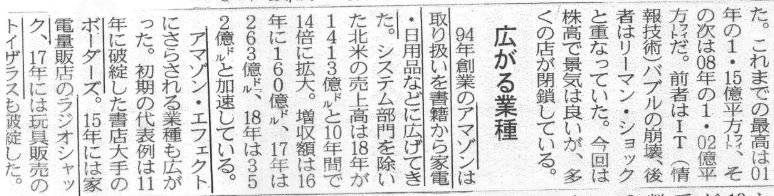 た。これまでの最高は01
年の1・15億平方㌳、そ
の次は08年の1・02億平
方㌳だ。前者はIT（情
報技術）バブルの崩壊、後
者はリーマン・ショック
と重なっていた。今回は
株高で景気は良いが、多
くの店が閉鎖している。
広がる業種
94年創業のアマゾンは
取り扱いを書籍から家電
・日用品などに広げてき
た。システム部門を除い
た北米の売上高は18年が
1413億㌦と10年間で
14倍に拡大。増収額は16
年に160億㌦、17年は
263億㌦、18年は35
2億㌦と加速している。
アマゾン・エフェクト
にさらされる業種も広が
った。初期の代表例は11
年に破綻した書店大手の
ボーダーズ。15年には家
電量販店のラジオシャッ
ク、17年には玩具販売の
トイザラスも破綻した。